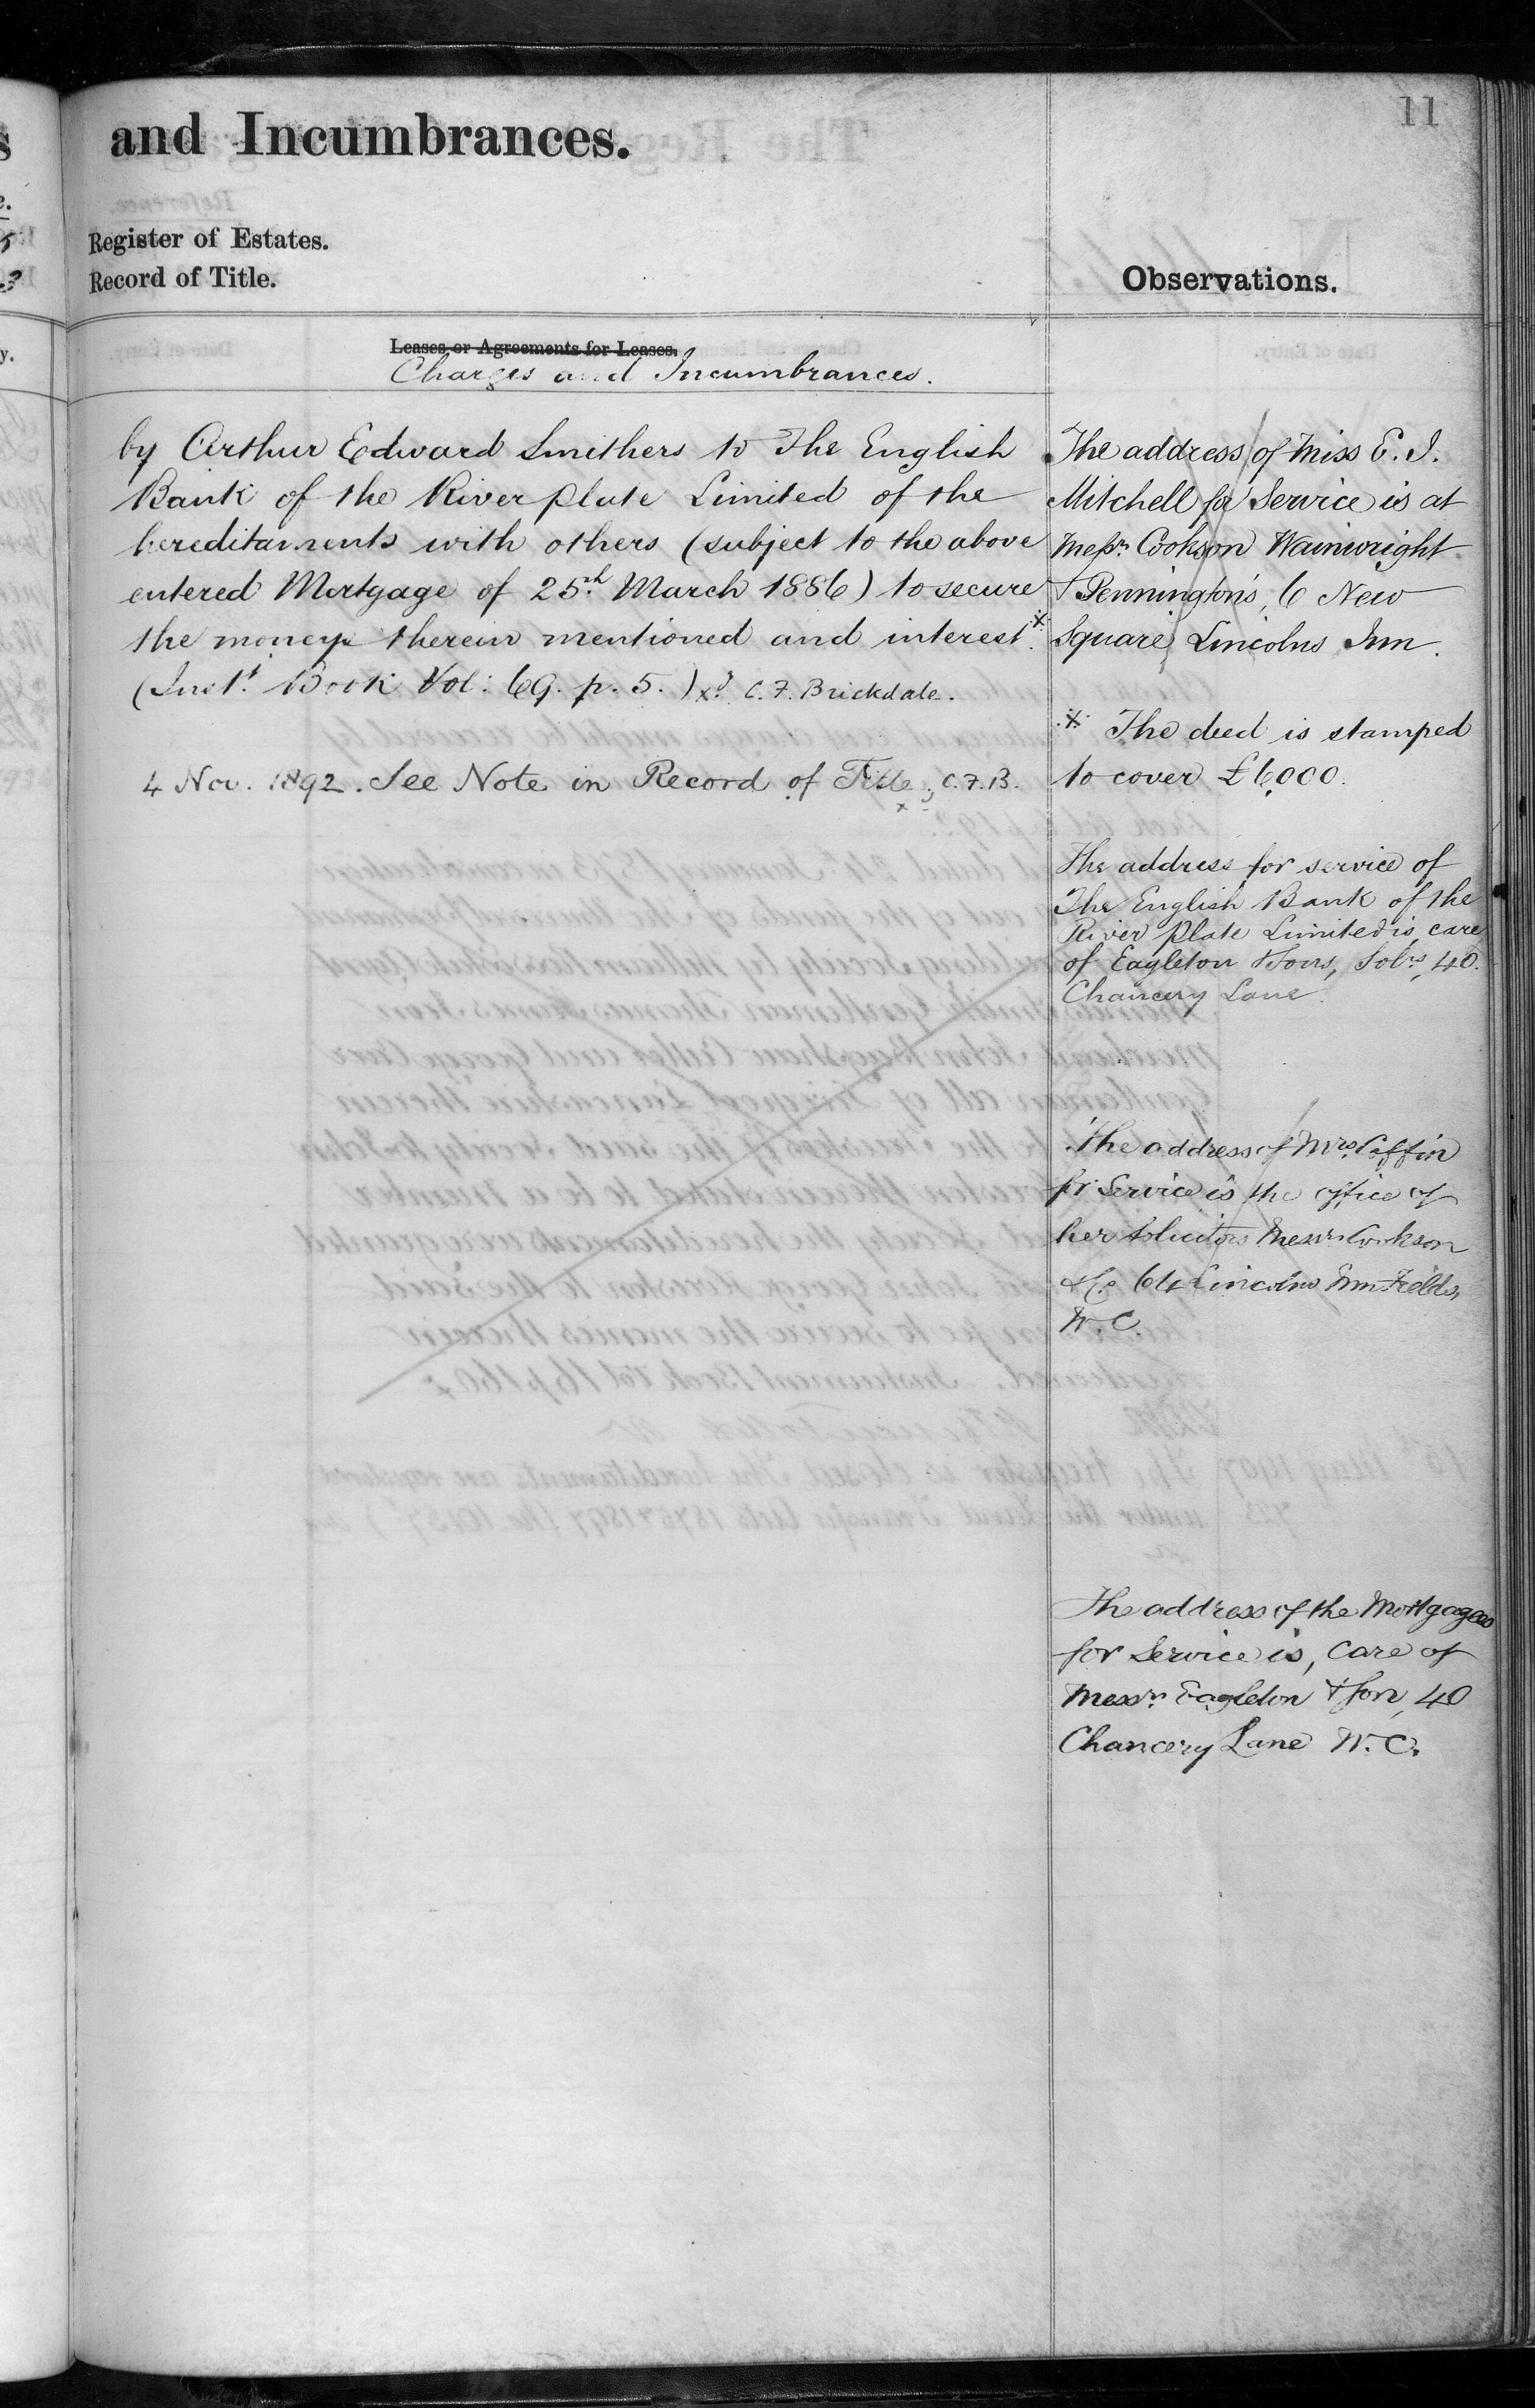 11
and Incumbrances.
Register of Estates.
Record of Title.
Observations.
Leases or Agreements for Leases.
Charges and Incumbrances.
by Arthur Edward Smithers to The English
Bank of the River plate Limited of the
hereditaments with others (subject to the above
entered Mortgage of 25th March 1886) to secure
the moneys therein mentioned and interest.
(Inst. Book Vol: 69. p. 5.) x C. F. Brickdale.
4 Nov. 1892. See Note in Record of Title, C.F.B.
The address of Miss E. J.
Mitchell for Service is at
Messrs Cookson Wainwright
+ Pennington's, 6 New
Square, Lincolns Inn.
The deed is stamped
to cover £6,000.
The address for service of
The English Bank of the
River plate Limited is, care
of Eagleton & Sons, Solrs, 40.
Chancery Lane.
The address of Mrs Coffin
for Service is the office of
her Solicitors Messrs Cookson
& Co 64 Lincolns Inn Fields,
W.C.
The address of the Mortgagees
for Service is, care of
Messrs Eagleton & Son, 40
Chancery Lane W.C.